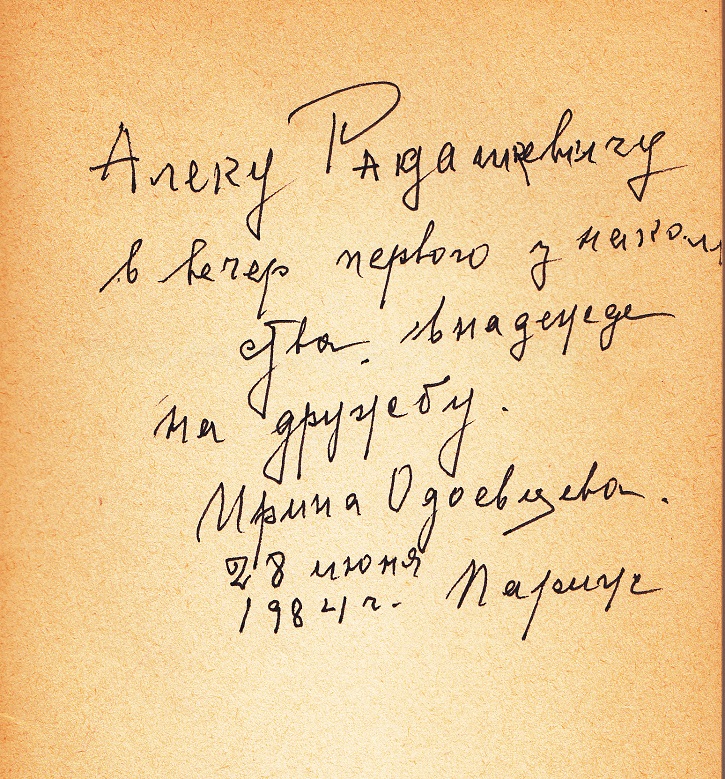 Алеку Радашкевичу
в вечер первого знаком
ства. в надежде
на дружбу.
Ирина Одоевцева.
28 июня
1984 г. Париж